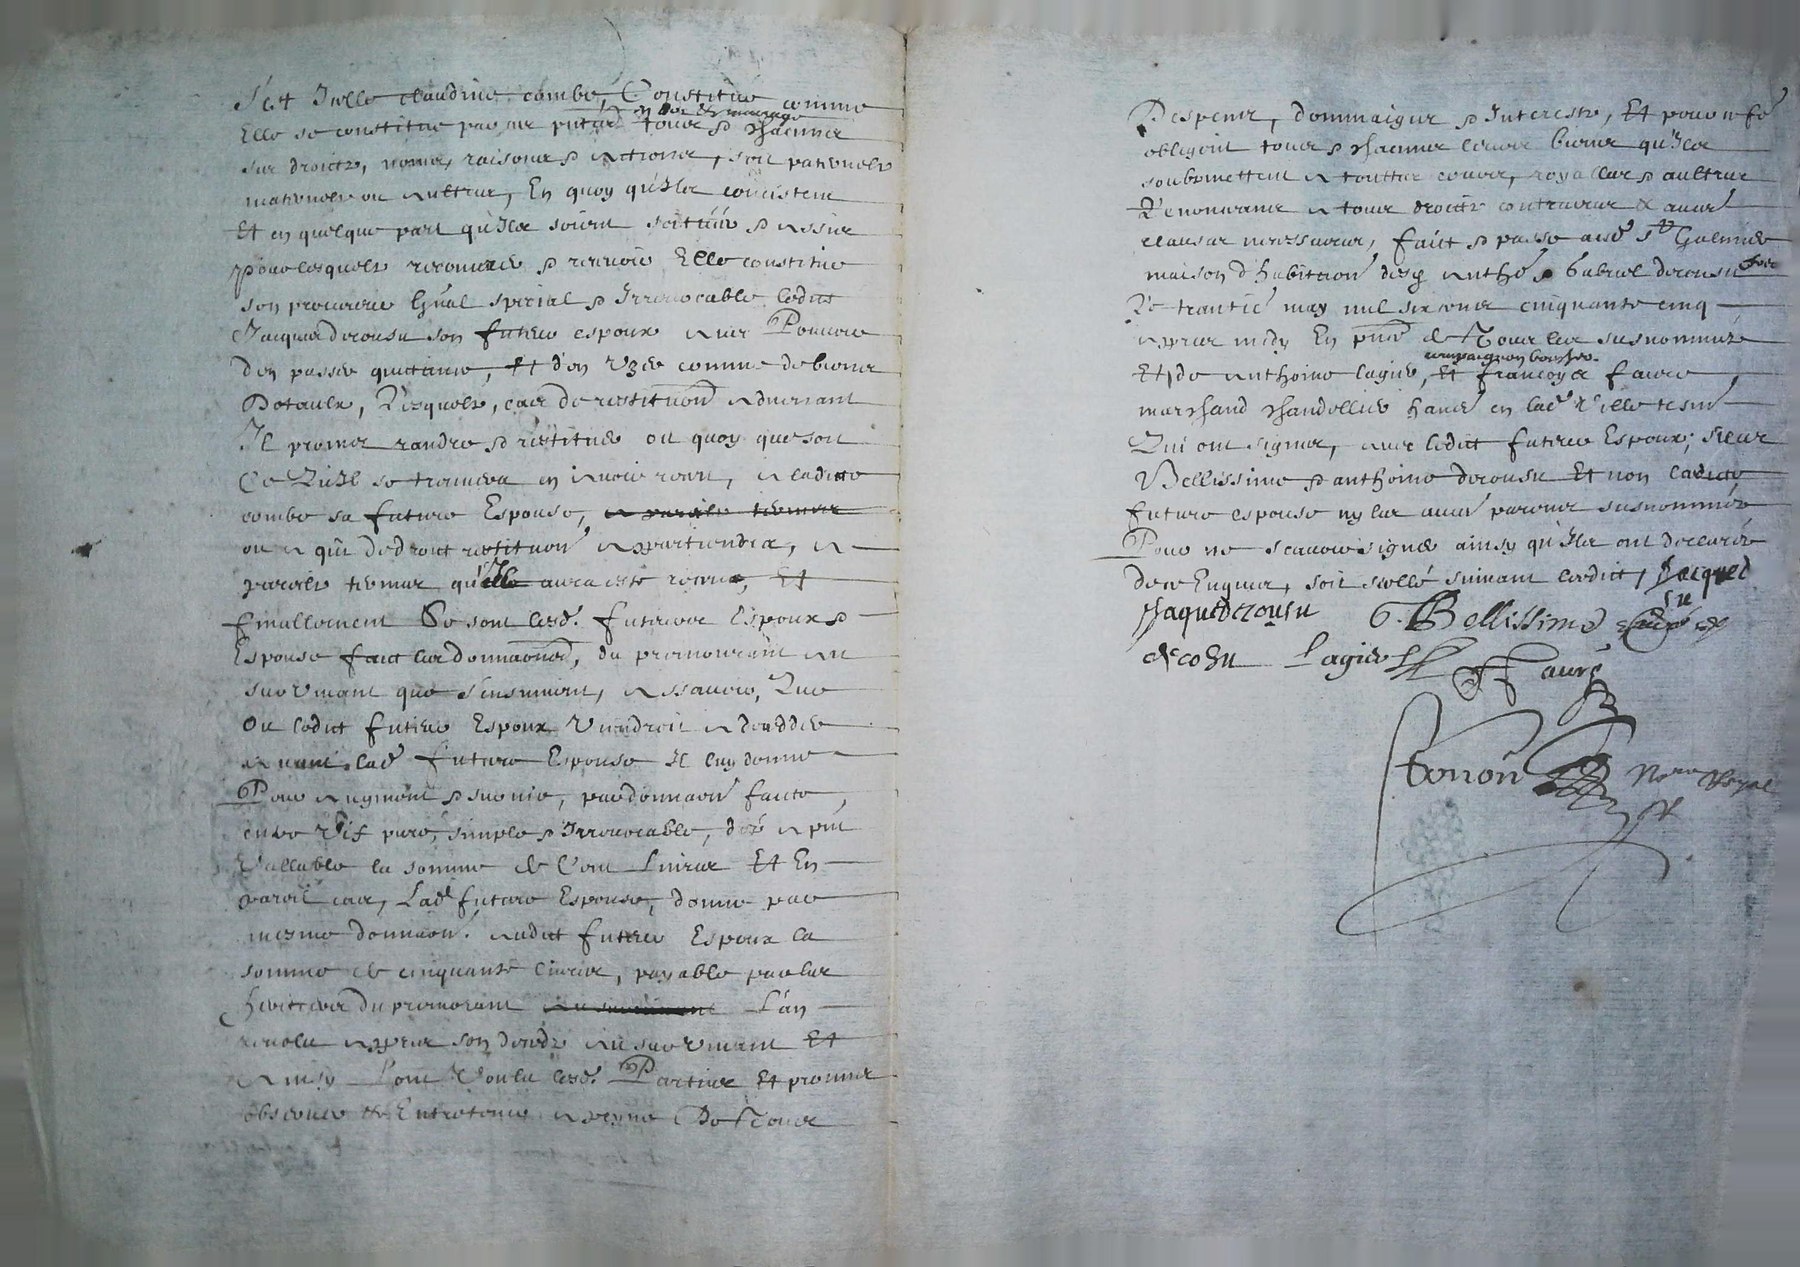 Sest Icelle claudine combe, Constitué comme
en dot et mariage
Elle se constitue par ces tous & chacuns
ses droictz, noms, raisons & actions, soit paternelz
maternelz ou aultres, En quoy qu'ilz concistent
Et en quelque part qu'ilz soient & assis
pour lesquelz Elle constitue
son procureur special & Irrevocable ledict
Jacques derousu son futeur espoux avec Pouvoir
d'en passer quictance, Et d'en Uzer comme de biens
Dotaulx, Lesquelz, cas de restituon advenant
Il promet randre & restituer ou quoy que soit
Ce Qu'il se trouvera en avoir receu, a ladicte
combe sa future Espouse,
ou a qui de droict restituon appartiendra, a
pareilz termes qu'Il aura esté receu, Et
finallement Se sont lesd. futeurs Espoux &
Espouse faict les donnaons, du premourant au
survivant que s'ensuivent, assavoir, Que
Ou ledict futeur Espoux Viendroit a decedder
avant lad future Espouse Il luy donne
Pour augment & survie, par donnaon faicte
entre Vifs pure, simple & Irrevocable,
Vallable la somme de Cent Livres Et En
pareil cas, Lad future Espouse, donne par
mesme donnaon. audict futeur Espoux la
somme de cinquante livres, payable par les
heritiers du premorant L'an
revolu apres son decedz au survivant Et
Ainsy L'ont Voulu lesd. Parties Et promis
observer & Entretenir a peyne De Tous
Despens, dommaiges & Interestz, Et pour ce
obligent tous & chacuns leurs biens qu'ilz
soubzmettent a touttes cours, royalles & aultres
Renonceans a tous droictz contraires & aues
clauses necessaires, faict & passé
maison d'habitaon desd Anthe & Gabriel derousu
Le trantie may mil six cens cinquante cinq
apres midy En pnce de Tous les susnommés
compaignon
Et de Anthoine lagier, Et françoys faure
marchand chandellier hant en lad Ville tesm
Qui ont signés, avec ledict futeur Espoux, sieur
Bellissime & anthoine derousu Et non ladicte
future espouse ny les aues parens susnommés
Pour ne scavoir signer ainsy qu'ilz ont declarés
de ce Enquis, soit scellé suivant l'edict, Jacques
Jaque derousu G. Bellissime
Lagier F Faure
tonon Nore Royal